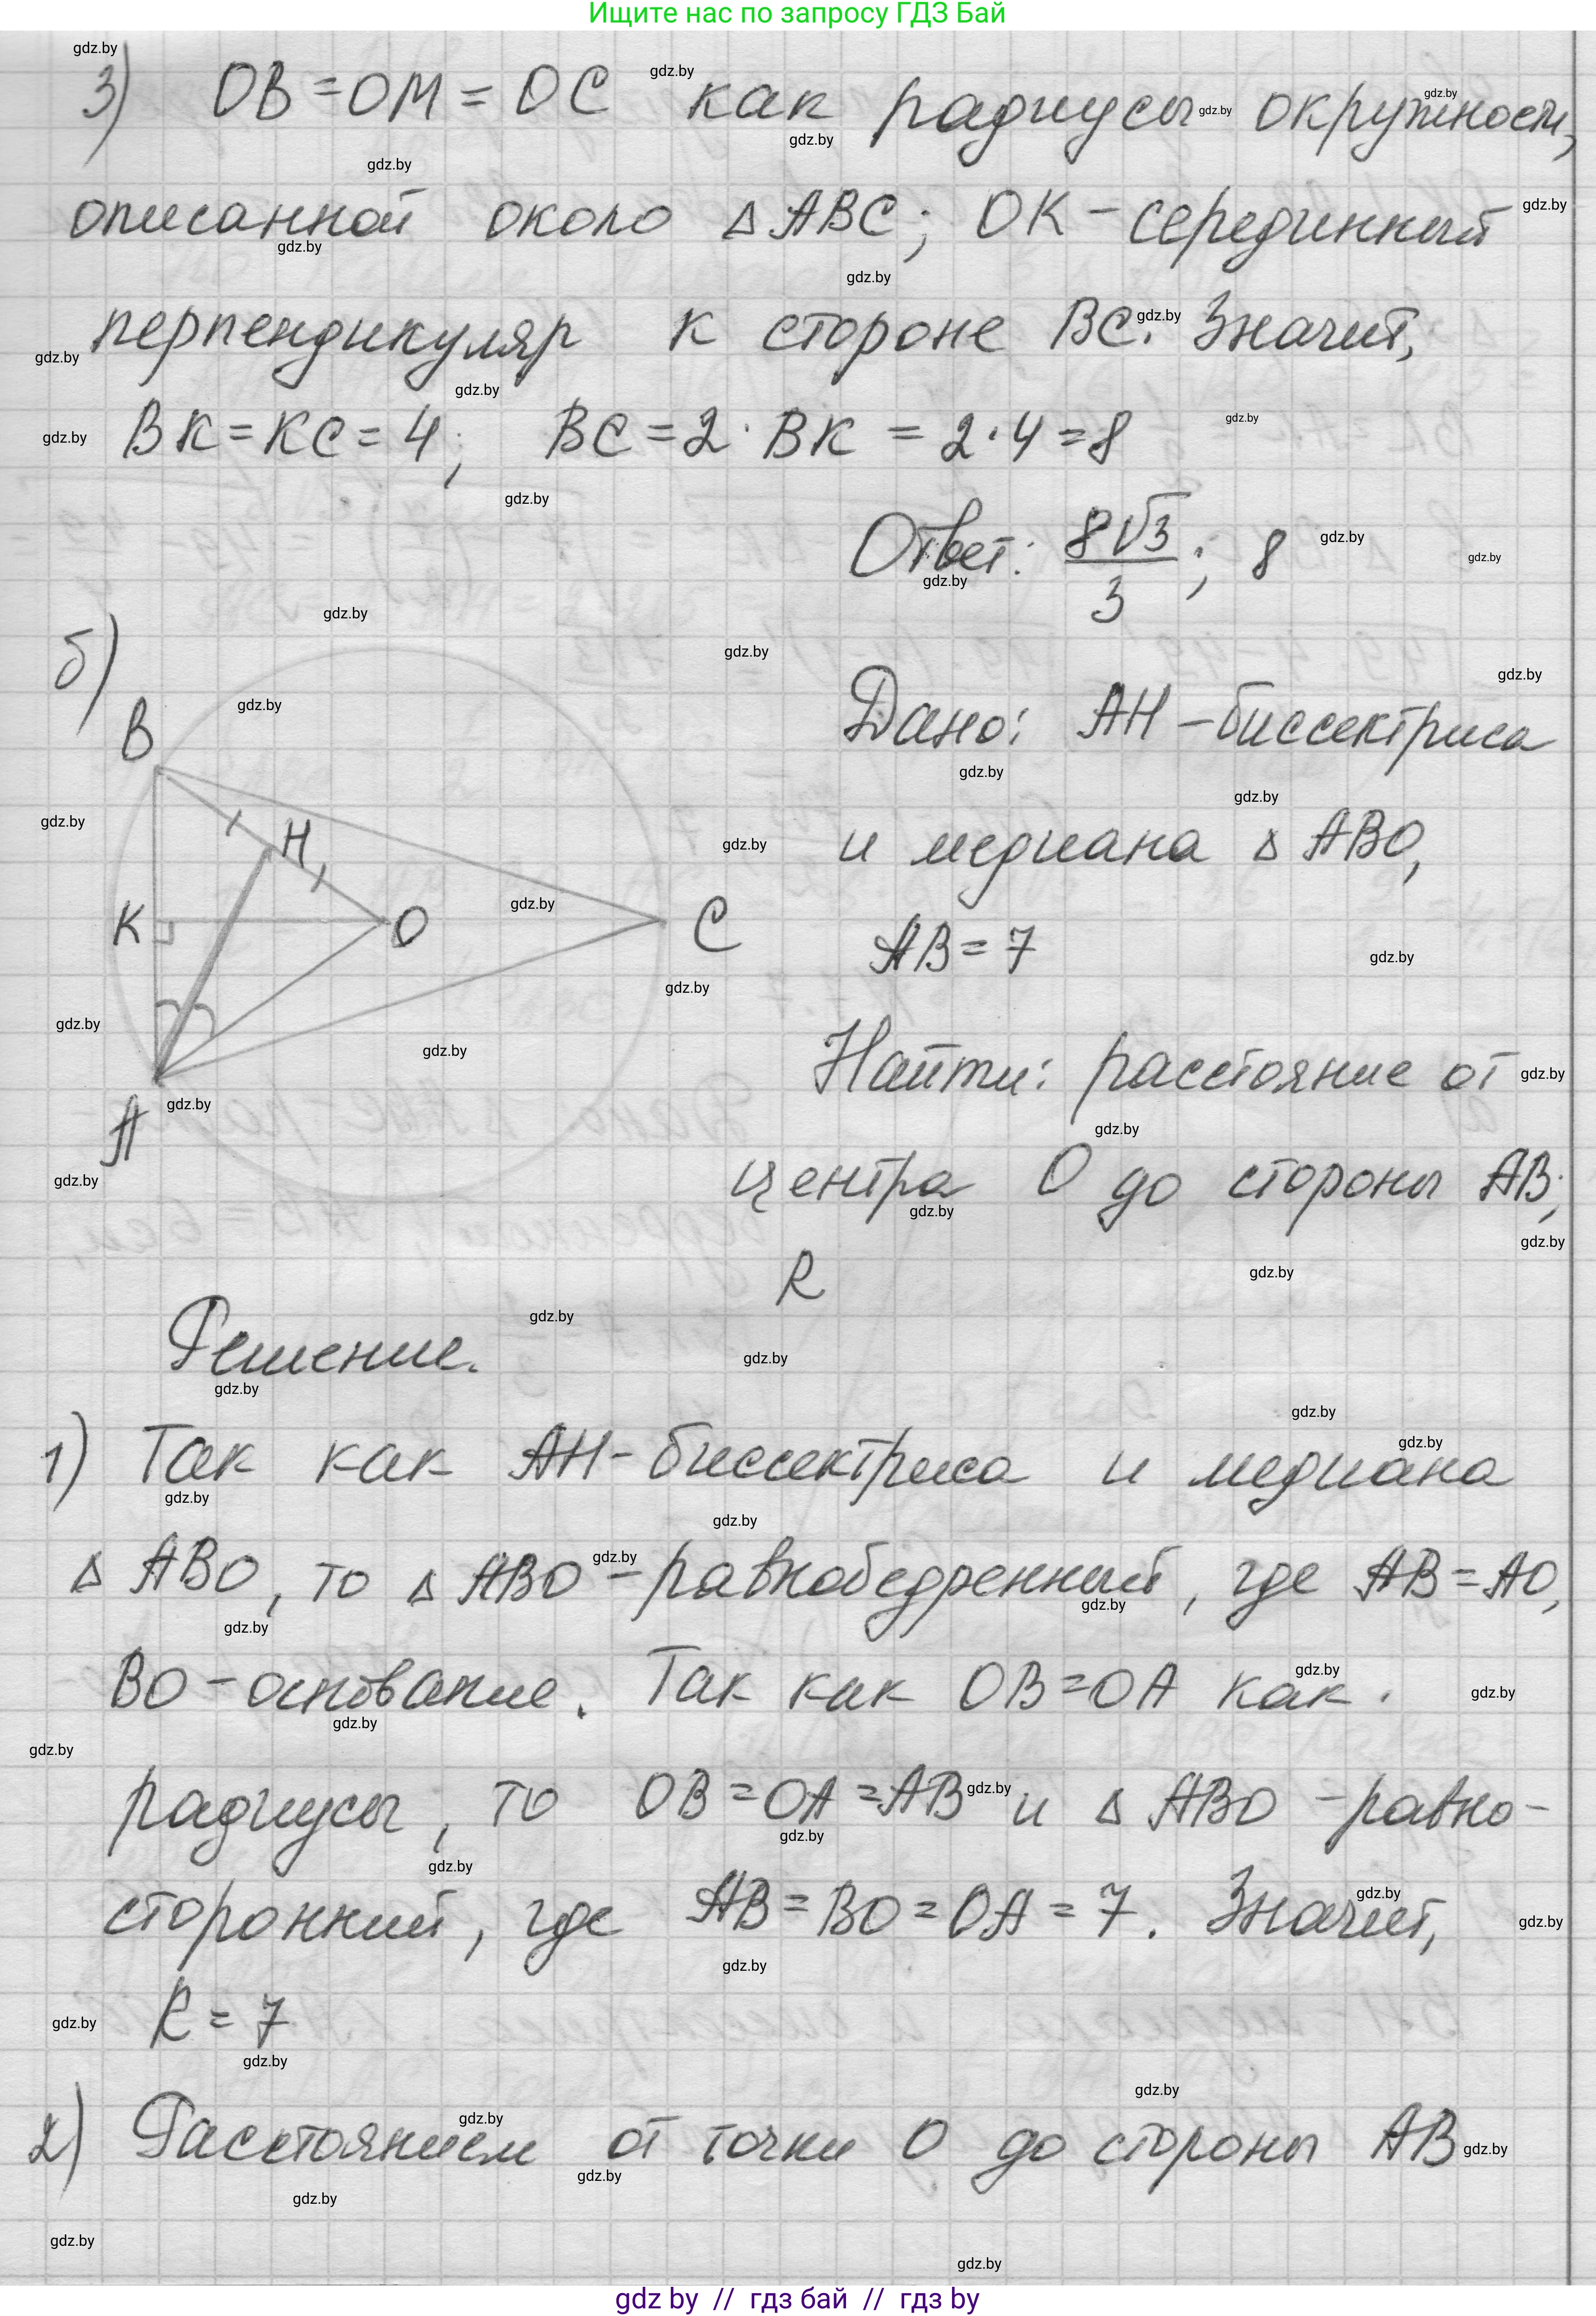 Ищите нас по запросу ГДЗ Бай
3) OB = OM = OC как радиусы окружности,
описанной около △ABC; OK - серединный
перпендикуляр к стороне BC. Значит,
BK = KC = 4; BC = 2 · BK = 2 · 4 = 8
Ответ: 8√3/3; 8
б)
B
H
K
O
C
A
Дано: AH - биссектриса
и медиана △ ABO,
AB = 7
Найти: расстояние от
центра O до стороны AB;
R
Решение.
1) Так как AH - биссектриса и медиана
△ ABO, то △ ABO - равнобедренный, где AB = AO,
BO - основание. Так как OB = OA как
радиусы, то OB = OA = AB и △ ABO - равно-
сторонний, где AB = BO = OA = 7. Значит,
R = 7
2) Расстоянием от точки O до стороны AB
gdz by // гдз бай // гдз by